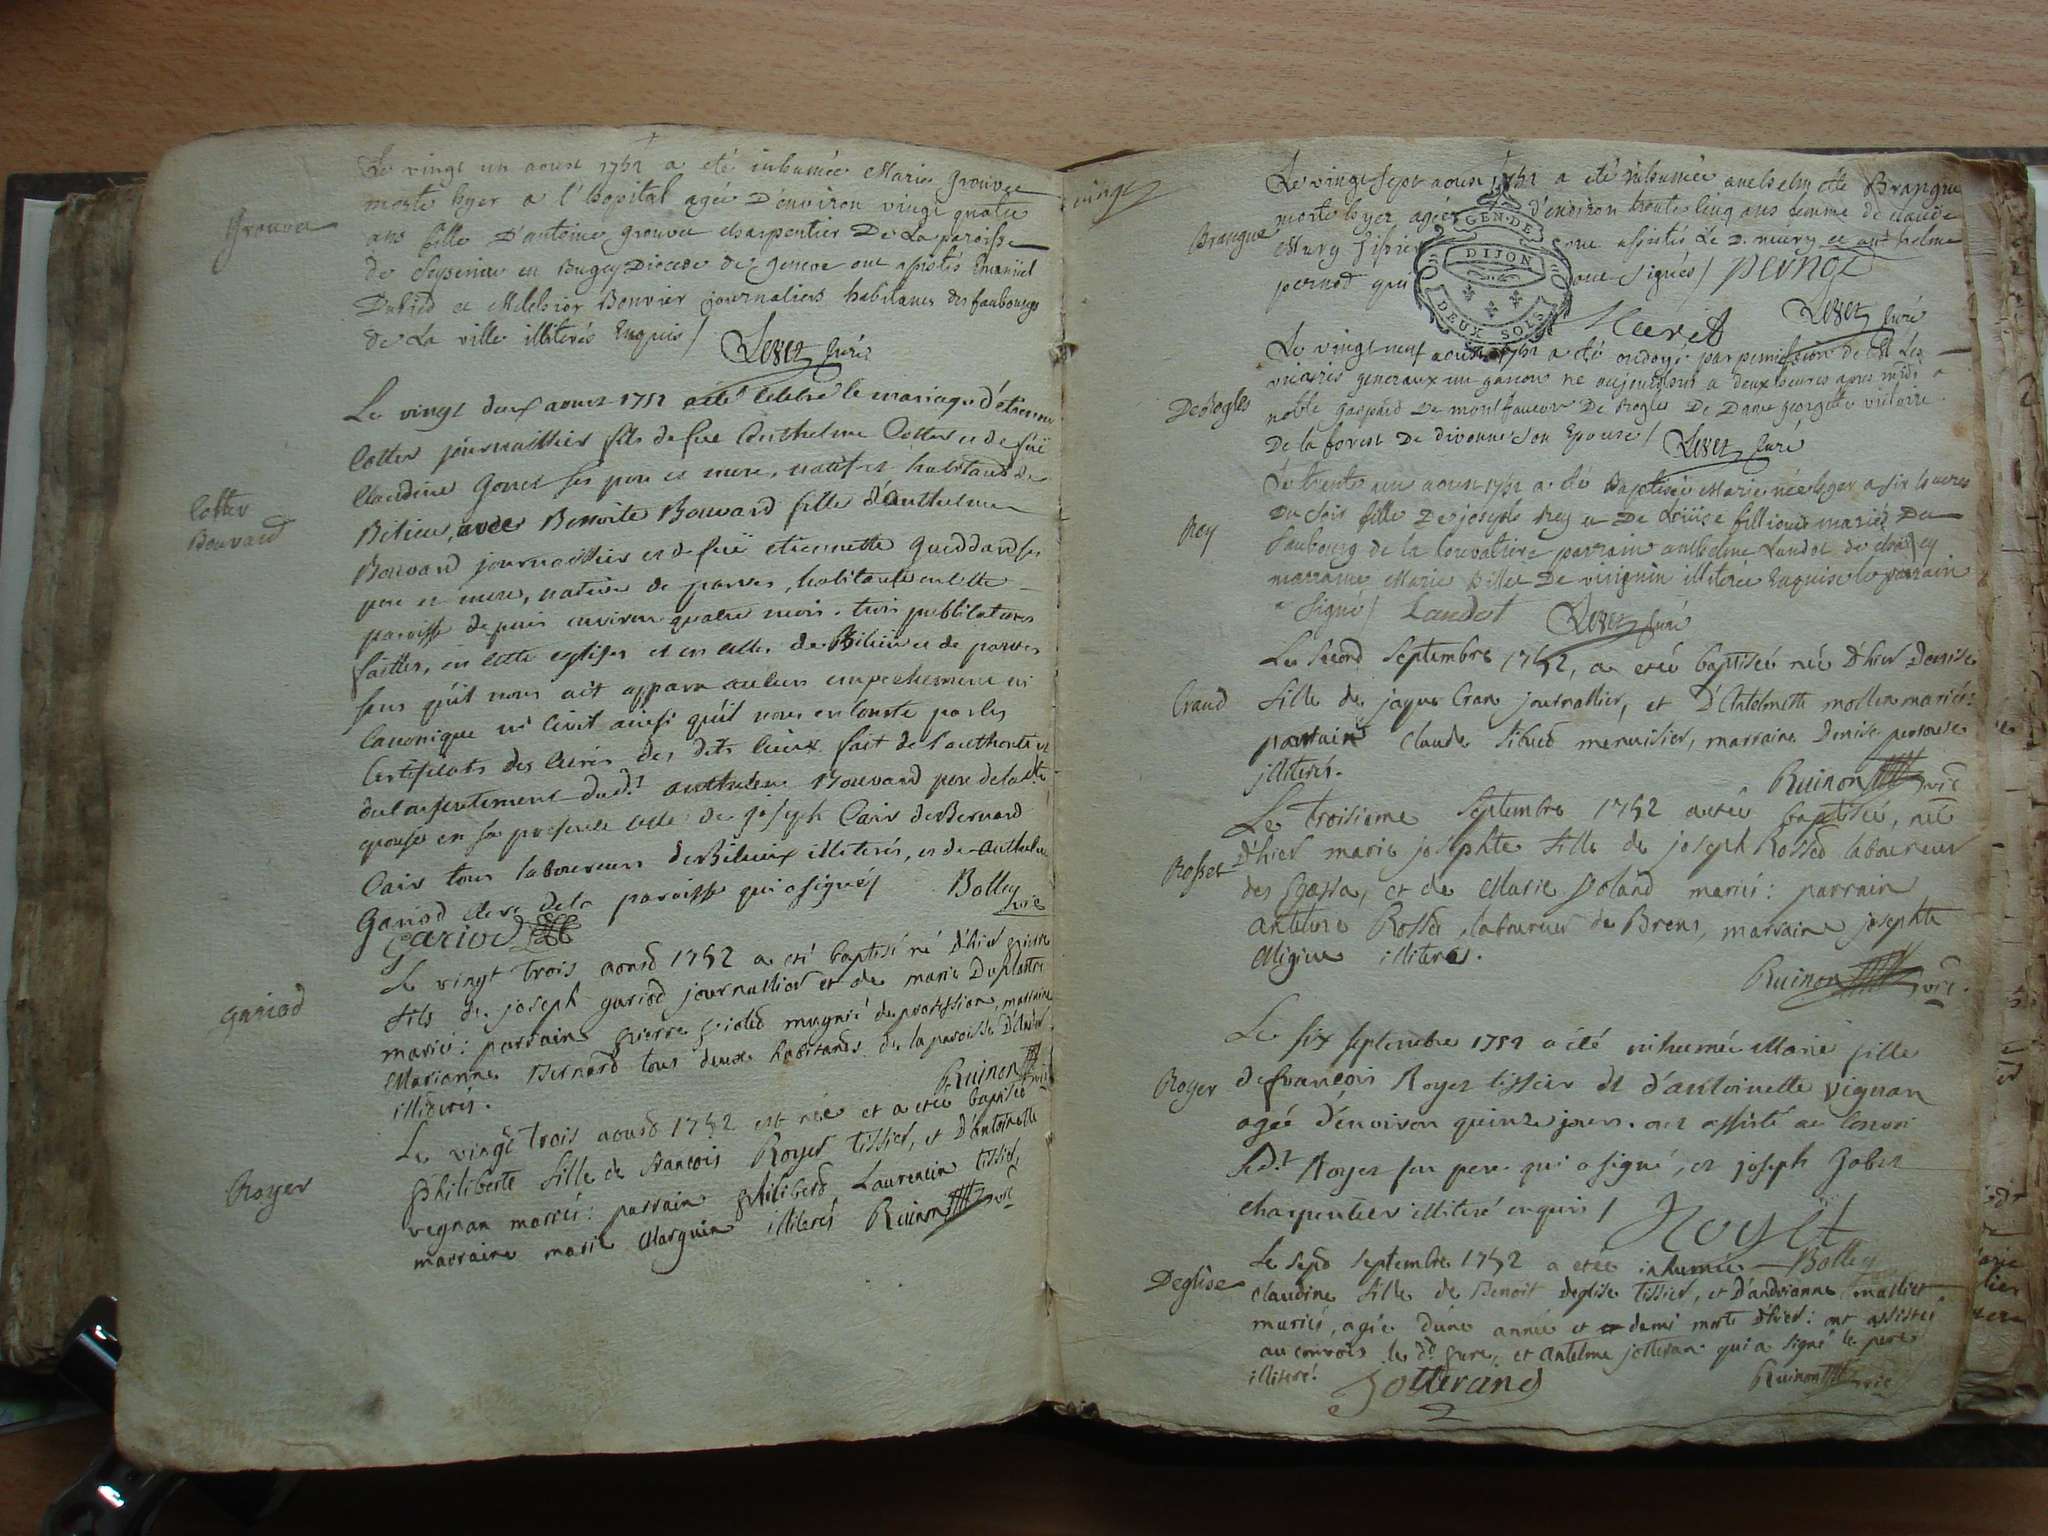 Le vingt un aoust 1752 a eté inhumée Marie grouvee
morte hyer a l'hopital agée D'environ vingt quatre
ans fille D'antoine grouvee charpentier De La paroisse
de en Bugey Diocese de geneve ont assistés
et Melchior Bouvier journaliers habitans des faubourgs
de La ville illiterés Enquis /
curé
Le vingt deux aoust 1752 a été celebré le mariage d'étienne
Cotter journaillier fils de feu Anthelme Cotter et de feüe
Claudine ses pere et mere, natif et habitant de
avec Benoite Bouvard fille d'Anthelme
Bouvard journaillier et de feüe etiennette
pere et mere, native de parves, habitante en cette
paroisse depuis environ quatre mois. trois publications
faittes, en cette eglise et en celles de et de parves
sans qu'il nous ait apparu aucun empechement ni
Canonique ni Civil ainsi qu'il nous en conste par les
Certificats des Curés des dits lieux fait de l'authorité et
du consentement dud.t anthelme Bouvard pere de lad.te
epouse en sa presence celle de joseph Cair de Bernard
Cair tous laboureurs de illiterés, et de Anthelme
Gariod clerc de la paroisse qui a signé /
Bolley vic
Gariod
Le vingt trois aoust 1752 a eté baptisé né D'hier pierre
fils de joseph gariod journallier et de marie Duplatre
mariés: parrain pierre de profession, marraine
Marianne Bernard tous deux habitands de la paroisse
illiterés.
Ruinon vic
Le vingt trois aoust 1752 est née et a eteé baptisée
Philiberte fille de francois Royer tissier, et D'antoinette
vegnan mariés: parrain philiberd Laurencin tissier,
marraine marie Marguin illiterés Ruinon vic
grouvee
Cotter
Bouvard
gariod
Royer
Le vingt sept aoust 1752 a eté inhumée anthelmette Brangue
morte hyer agée d'environ trente cinq ans femme de claude
Mury ont assistés Le D. mury et anthelme
pernod qui ont signés / pernot
GEN. DE
DIJON
DEUX SOLS
curé
Le vingt neuf aoust 1752 a eté ondoyé par permission de M Les
vicaires generaux un garçon né aujourdhui a deux heures apres midi a
noble gaspard De montfaucon De Rogles De Dame georgette victoire
De la forest De divonne son Epouse /
curé
Le trente un aoust 1752 a eté Baptisée Marie née hyer a six heures
Du soir fille De joseph Rey et De mariés Du
faubourg de la parrain anthelme Landot de
marraine Marie Billiet De virignin illiterée Enquise le parrain
a signé / Landot
curé
Le second septembre 1752, a eteé baptiseé neé D'hier Denise
fille de jaque Cran journallier, et D'Antelmette mollin mariés:
parrain Claude Sibued menuisier, marraine Denise
illiterés.
Ruinon vic
Le troisieme septembre 1752 a eteé baptisée, née
D'hier marie josephte fille de joseph Rossed laboureur
des et de Marie Goland mariés: parrain
antelme Rossed, laboureur de Brens, marraine josephte
Migieu illiterés.
Ruinon vic.
Le six septembre 1752 a été inhumée Marie fille
de françois Royer tissier et d'antoinette Vignan
agée d'environ quinze jours. ont assisté au convoi
led.t Royer son pere qui a signé, et joseph
charpentier illiteré enquis / Royet
Bolley
Le sept septembre 1752 a eteé inhumée
Claudine fille de Benoit deglise tissier, et D'andreanne
mariés, agée d'une année et demi morte d'hier: ont assistés
au convois le dt pere, et antelme jotteran qui a signé le pere
illiteré.
Jotterand
Ruinon vic
Brangue
De Rogles
Rey
Craud
Rosset
Royer
Deglise